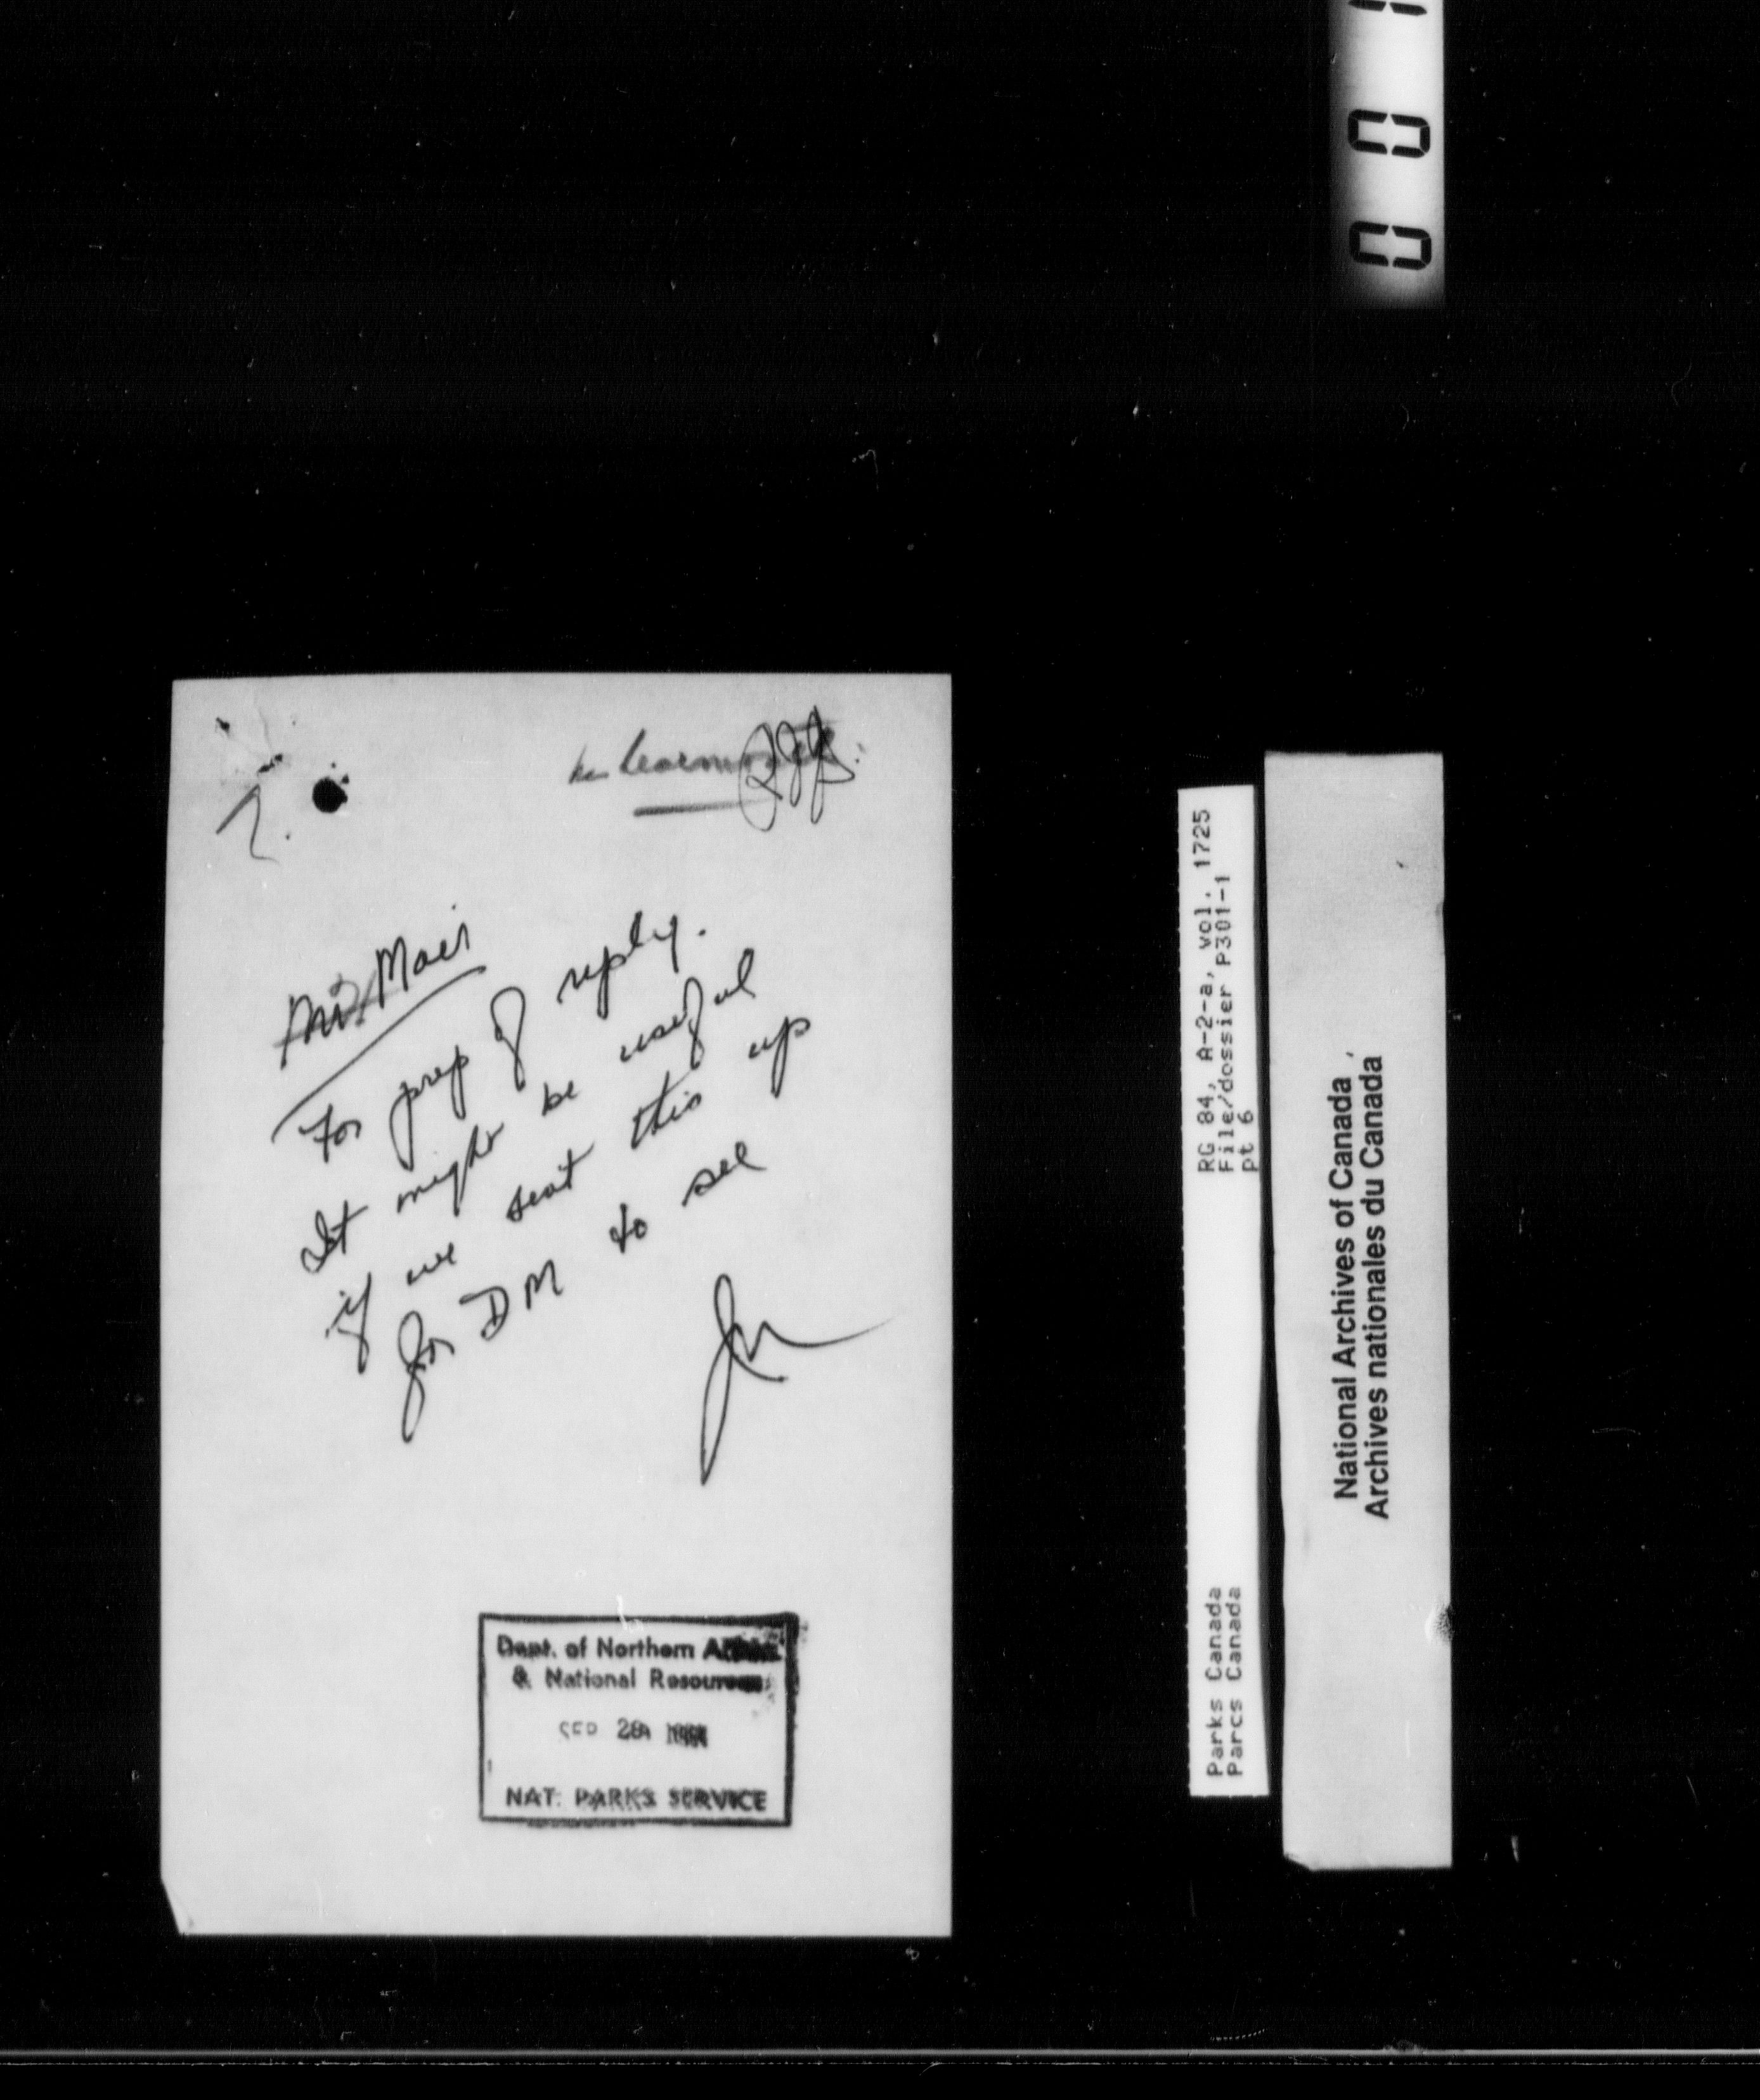 Mr. Mair
For prep of reply.
It might be useful
if we sent this up
for DM to see
Dept. of Northern Affairs
& National Resources
SEP 28
NAT. PARKS SERVICE
RG 84, A-2-a, vol. 1725
File/dossier P301-1
pt 6
Parks Canada
Parcs Canada
National Archives of Canada
Archives nationales du Canada
0 0 1